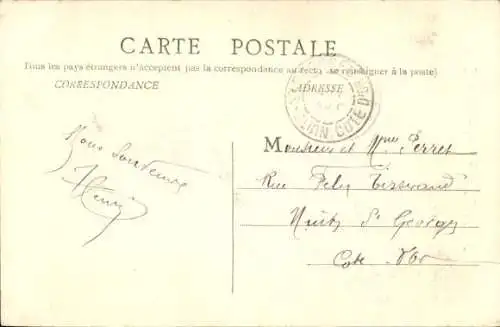 CARTE POSTALE
Tous les pays étrangers n'acceptent pas la correspondance au recto (se renseigner à la poste)
CORRESPONDANCE
ADRESSE
CÔTE D'O
Henri
Monsieur et Mme Perret
Rue Felix Tisserand
Nuits St Georges
Cote d'Or